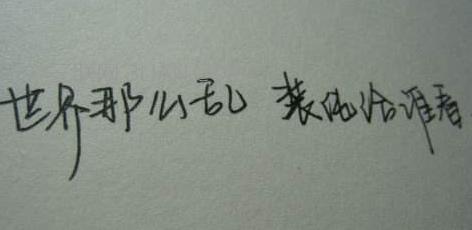 世界那么乱 装纯给谁看